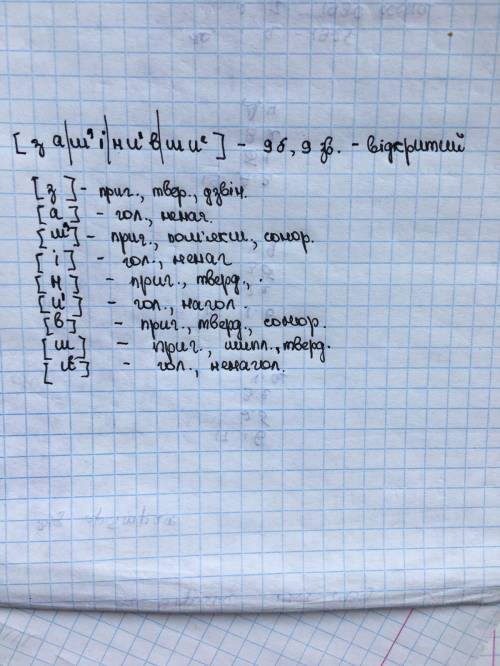 [за|м'і|ни́в|шиᵉ] - 9б, 9 зв. - відкритий
[з] - приг., твер., дзвін.
[а] - гол., ненаг.
[м'] - приг., пом'якш., сонор.
[і] - гол., ненаг
[н] - приг., тверд., .
[и́] - гол., нагол.
[в] - приг., тверд., сонор.
[ш] - приг., шипл., тверд.
[иᵉ] - гол., ненагол.